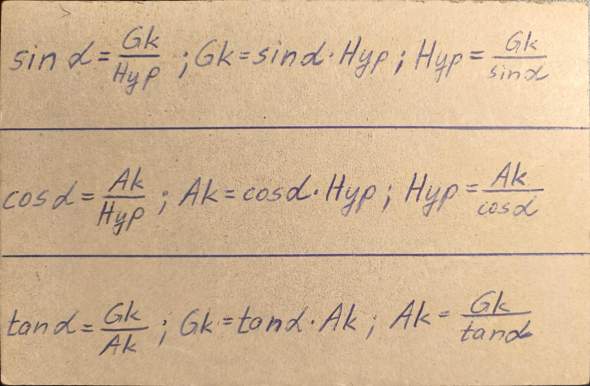 sin α = Gk/Hyp ; Gk = sin α · Hyp ; Hyp = Gk/sin α
cos α = Ak/Hyp ; Ak = cos α · Hyp ; Hyp = Ak/cos α
tan α = Gk/Ak ; Gk = tan α · Ak ; Ak = Gk/tan α